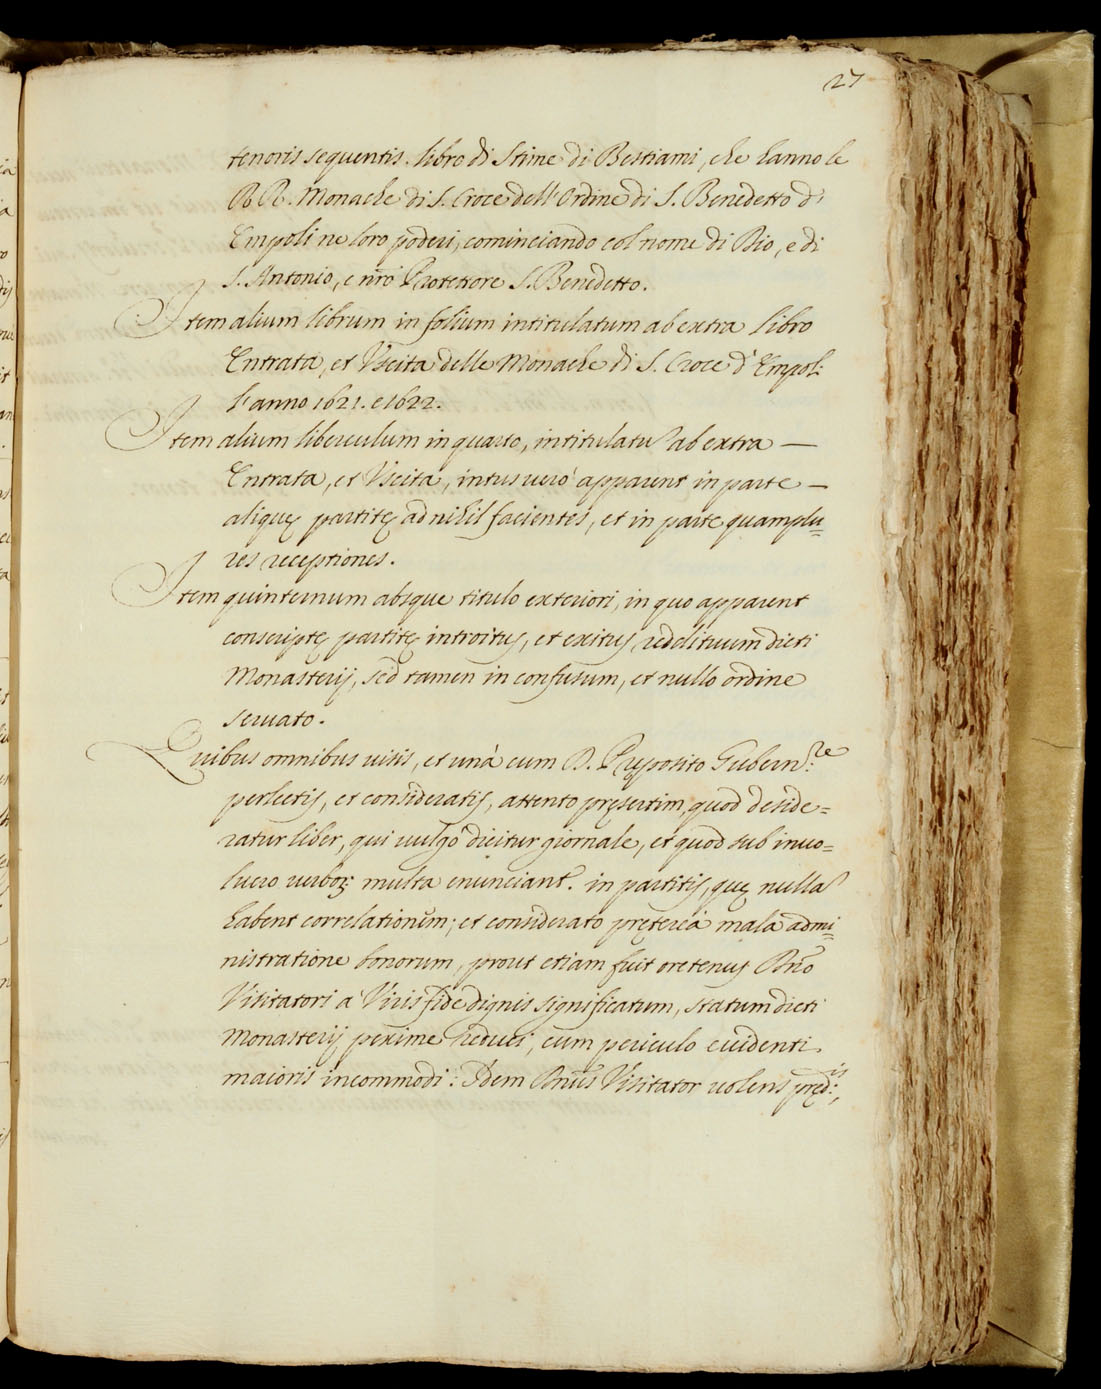 27
tenoris sequentis. libro di Stime di Bestiami, che hanno le
R.R. Monache di S. Croce dell'Ordine di S. Benedetto d'
Empoli ne loro poderi, cominciando col nome di Dio, e di
S. Antonio, e nrõ Protettore S. Benedetto.
Item alium librum in folium intitulatum ab extra libro
Entrata, et Vscita delle Monache di S. Croce d'Empoli
l'anno 1621. e 1622.
Item alium liberculum in quarto, intitulatũ ab extra —
Entrata, et Vscita, intus uerò apparent in parte —
aliquę partitę ad nihil facientes, et in parte quamplu=
res receptiones.
Item quinternum absque titulo exteriori, in quo apparent
conscriptę partitę introitus, et exitus reddituum dicti
Monasterij, sed tamen in confusum, et nullo ordine
seruato.
Quibus omnibus uisis, et unà cum D. Pręposito Gubern:re
perlectis, et consideratis, attento pręsertim, quod deside=
ratur liber, qui uulgo dicitur giornale, et quod sub inuo=
lucro uerboꝝ multa enunciant. in partitis, quę nullã
habent correlationem; et considerato prętereà mala admi=
nistratione bonorum, prout etiam fuit oretenus Rmõ
Visitatori a Viris fide dignis significatum, statum dicti
Monasterij pexime reduci, cum periculo euidenti
maioris incommodi: Idem Rmũs Visitator uolens pręd:is,